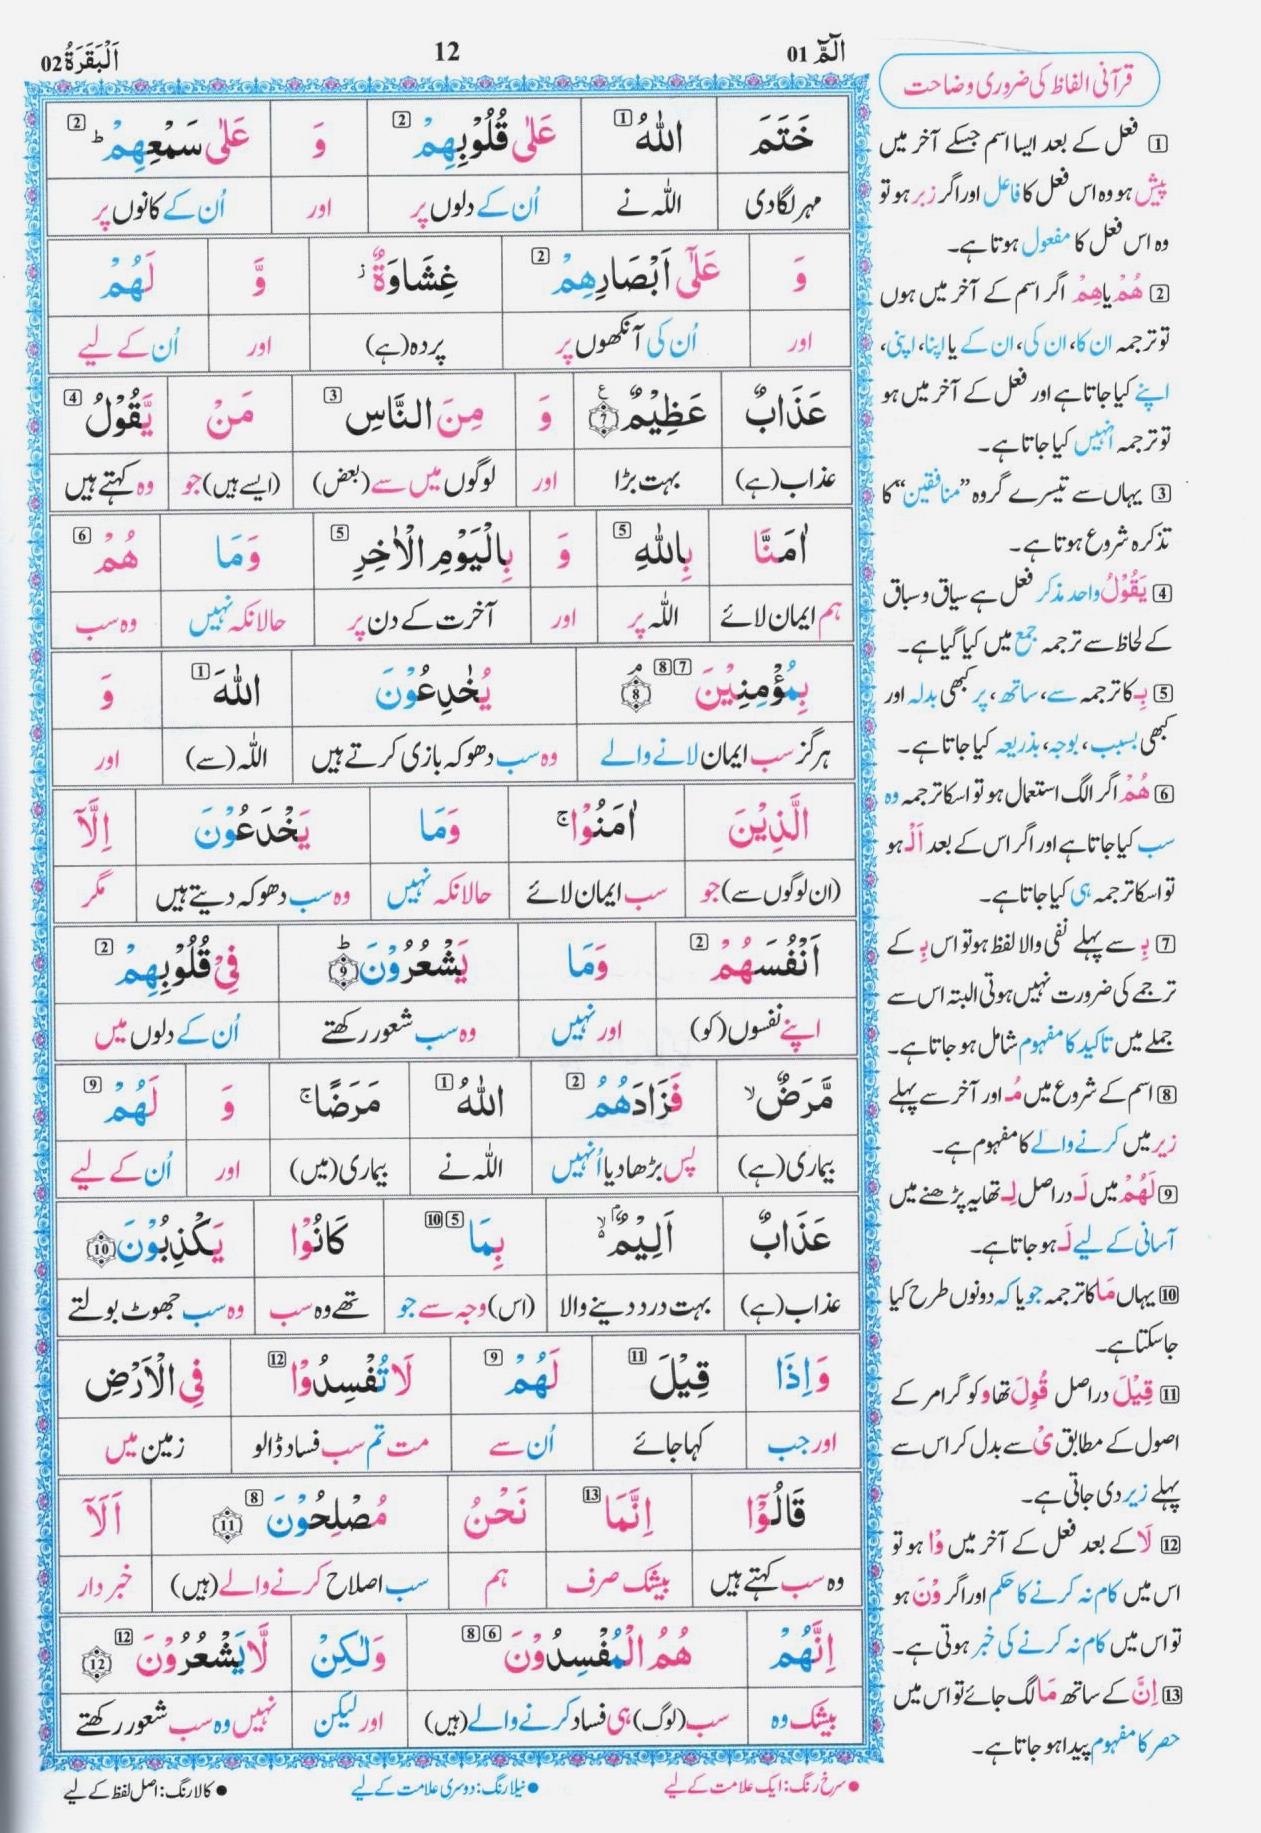 الٓمّٓ 01
12
اَلْبَقَرَةُ 02
قرآنی الفاظ کی ضروری وضاحت
خَتَمَ اللّٰهُ 1 عَلٰى قُلُوْبِهِمْ 2 وَ عَلٰى سَمْعِهِمْ ؕ 2
مہر لگادی اللہ نے اُن کے دلوں پر اور اُن کے کانوں پر
وَ عَلٰۤى اَبْصَارِهِمْ 2 غِشَاوَةٌ ؗ وَّ لَهُمْ
اور اُن کی آنکھوں پر پردہ (ہے) اور اُن کے لیے
عَذَابٌ عَظِيْمٌ ۧ7 وَ مِنَ النَّاسِ 3 مَنْ يَّقُوْلُ 4
عذاب (ہے) بہت بڑا اور لوگوں میں سے (بعض) (ایسے ہیں) جو وہ کہتے ہیں
اٰمَنَّا بِاللّٰهِ 5 وَ بِالْيَوْمِ الْاٰخِرِ 5 وَمَا هُمْ 6
ہم ایمان لائے اللہ پر اور آخرت کے دن پر حالانکہ نہیں وہ سب
بِمُؤْمِنِيْنَ ۘ8 7 8 يُخٰدِعُوْنَ اللّٰهَ 1 وَ
ہرگز سب ایمان لانے والے وہ سب دھوکہ بازی کرتے ہیں اللہ (سے) اور
الَّذِيْنَ اٰمَنُوْا ۚ وَمَا يَخْدَعُوْنَ اِلَّاۤ
(ان لوگوں سے) جو سب ایمان لائے حالانکہ نہیں وہ سب دھوکہ دیتے ہیں مگر
اَنْفُسَهُمْ 2 وَمَا يَشْعُرُوْنَ ؕ9 فِيْ قُلُوْبِهِمْ 2
اپنے نفسوں (کو) اور نہیں وہ سب شعور رکھتے اُن کے دلوں میں
مَّرَضٌ ۙ فَزَادَهُمُ 2 اللّٰهُ 1 مَرَضًا ۚ وَ لَهُمْ 9
بیماری (ہے) پس بڑھا دیا اُنہیں اللہ نے بیماری (میں) اور اُن کے لیے
عَذَابٌ اَلِيْمٌۢ ۙ بِمَا 5 10 كَانُوْا يَكْذِبُوْنَ 10
عذاب (ہے) بہت درد دینے والا (اس) وجہ سے جو تھے وہ سب وہ سب جھوٹ بولتے
وَاِذَا قِيْلَ 11 لَهُمْ 9 لَا تُفْسِدُوْا 12 فِي الْاَرْضِ
اور جب کہا جائے اُن سے مت تم سب فساد ڈالو زمین میں
قَالُوْۤا اِنَّمَا 13 نَحْنُ مُصْلِحُوْنَ 8 11 اَلَاۤ
وہ سب کہتے ہیں بیشک صرف ہم سب اصلاح کرنے والے (ہیں) خبردار
اِنَّهُمْ هُمُ الْمُفْسِدُوْنَ 6 8 وَلٰكِنْ لَّا يَشْعُرُوْنَ 12 12
بیشک وہ سب (لوگ) ہی فساد کرنے والے (ہیں) اور لیکن نہیں وہ سب شعور رکھتے
1 فعل کے بعد ایسا اسم جسکے آخر میں
پیش ہو وہ اس فعل کا فاعل اور اگر زبر ہو تو
وہ اس فعل کا مفعول ہوتا ہے۔
2 هُمْ یا هِمْ اگر اسم کے آخر میں ہوں
تو ترجمہ ان کا، ان کی، ان کے یا اپنا، اپنی،
اپنے کیا جاتا ہے اور فعل کے آخر میں ہو
تو ترجمہ انہیں کیا جاتا ہے۔
3 یہاں سے تیسرے گروہ ”منافقین“ کا
تذکرہ شروع ہوتا ہے۔
4 يَقُوْلُ واحد مذکر فعل ہے سیاق و سباق
کے لحاظ سے ترجمہ جمع میں کیا گیا ہے۔
5 بِـ کا ترجمہ سے، ساتھ، پر کبھی بدلہ اور
کبھی بسبب، بوجہ، بذریعہ کیا جاتا ہے۔
6 هُمْ اگر الگ استعمال ہو تو اسکا ترجمہ وہ
سب کیا جاتا ہے اور اگر اس کے بعد اَلْ ہو
تو اسکا ترجمہ ہی کیا جاتا ہے۔
7 بِـ سے پہلے نفی والا لفظ ہو تو اس بِـ کے
ترجمے کی ضرورت نہیں ہوتی البتہ اس سے
جملے میں تاکید کا مفہوم شامل ہو جاتا ہے۔
8 اسم کے شروع میں مُـ اور آخر سے پہلے
زیر میں کرنے والے کا مفہوم ہے۔
9 لَهُمْ میں لَـ دراصل لِـ تھا یہ پڑھنے میں
آسانی کے لیے لَـ ہو جاتا ہے۔
10 یہاں مَا کا ترجمہ جو یا کہ دونوں طرح کیا
جا سکتا ہے۔
11 قِيْلَ دراصل قُوِلَ تھا و کو گرامر کے
اصول کے مطابق یْ سے بدل کر اس سے
پہلے زیر دی جاتی ہے۔
12 لَا کے بعد فعل کے آخر میں وْا ہو تو
اس میں کام نہ کرنے کا حکم اور اگر وْنَ ہو
تو اس میں کام نہ کرنے کی خبر ہوتی ہے۔
13 اِنَّ کے ساتھ مَا لگ جائے تو اس میں
حصر کا مفہوم پیدا ہو جاتا ہے۔
● سرخ رنگ: ایک علامت کے لیے
● نیلا رنگ: دوسری علامت کے لیے
● کالا رنگ: اصل لفظ کے لیے